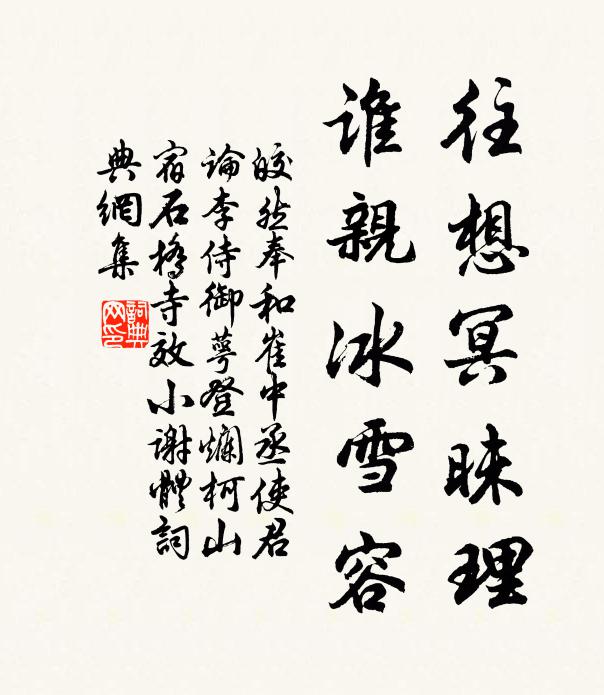 往想冥昧理
谁親冰雪容
皎然奉和崔中丞使君
論李侍御萼登爛柯山
宿石橋寺效小謝體詞
典網集
詞典
网印